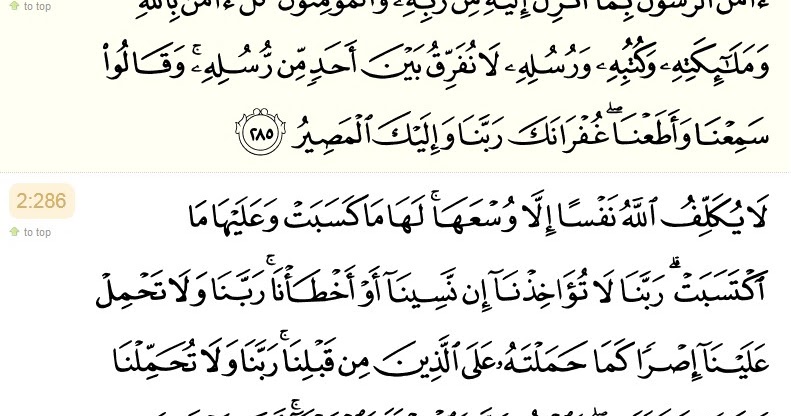 to top
ءَامَنَ ٱلرَّسُولُ بِمَآ أُنزِلَ إِلَيْهِ مِن رَّبِّهِۦ وَٱلْمُؤْمِنُونَ ۚ كُلٌّ ءَامَنَ بِٱللَّهِ
وَمَلَـٰٓئِكَتِهِۦ وَكُتُبِهِۦ وَرُسُلِهِۦ لَا نُفَرِّقُ بَيْنَ أَحَدٍ مِّن رُّسُلِهِۦ ۚ وَقَالُوا۟
سَمِعْنَا وَأَطَعْنَا ۖ غُفْرَانَكَ رَبَّنَا وَإِلَيْكَ ٱلْمَصِيرُ ﴿٢٨٥﴾
2:286
to top
لَا يُكَلِّفُ ٱللَّهُ نَفْسًا إِلَّا وُسْعَهَا ۚ لَهَا مَا كَسَبَتْ وَعَلَيْهَا مَا
ٱكْتَسَبَتْ ۗ رَبَّنَا لَا تُؤَاخِذْنَآ إِن نَّسِينَآ أَوْ أَخْطَأْنَا ۚ رَبَّنَا وَلَا تَحْمِلْ
عَلَيْنَآ إِصْرًا كَمَا حَمَلْتَهُۥ عَلَى ٱلَّذِينَ مِن قَبْلِنَا ۚ رَبَّنَا وَلَا تُحَمِّلْنَا